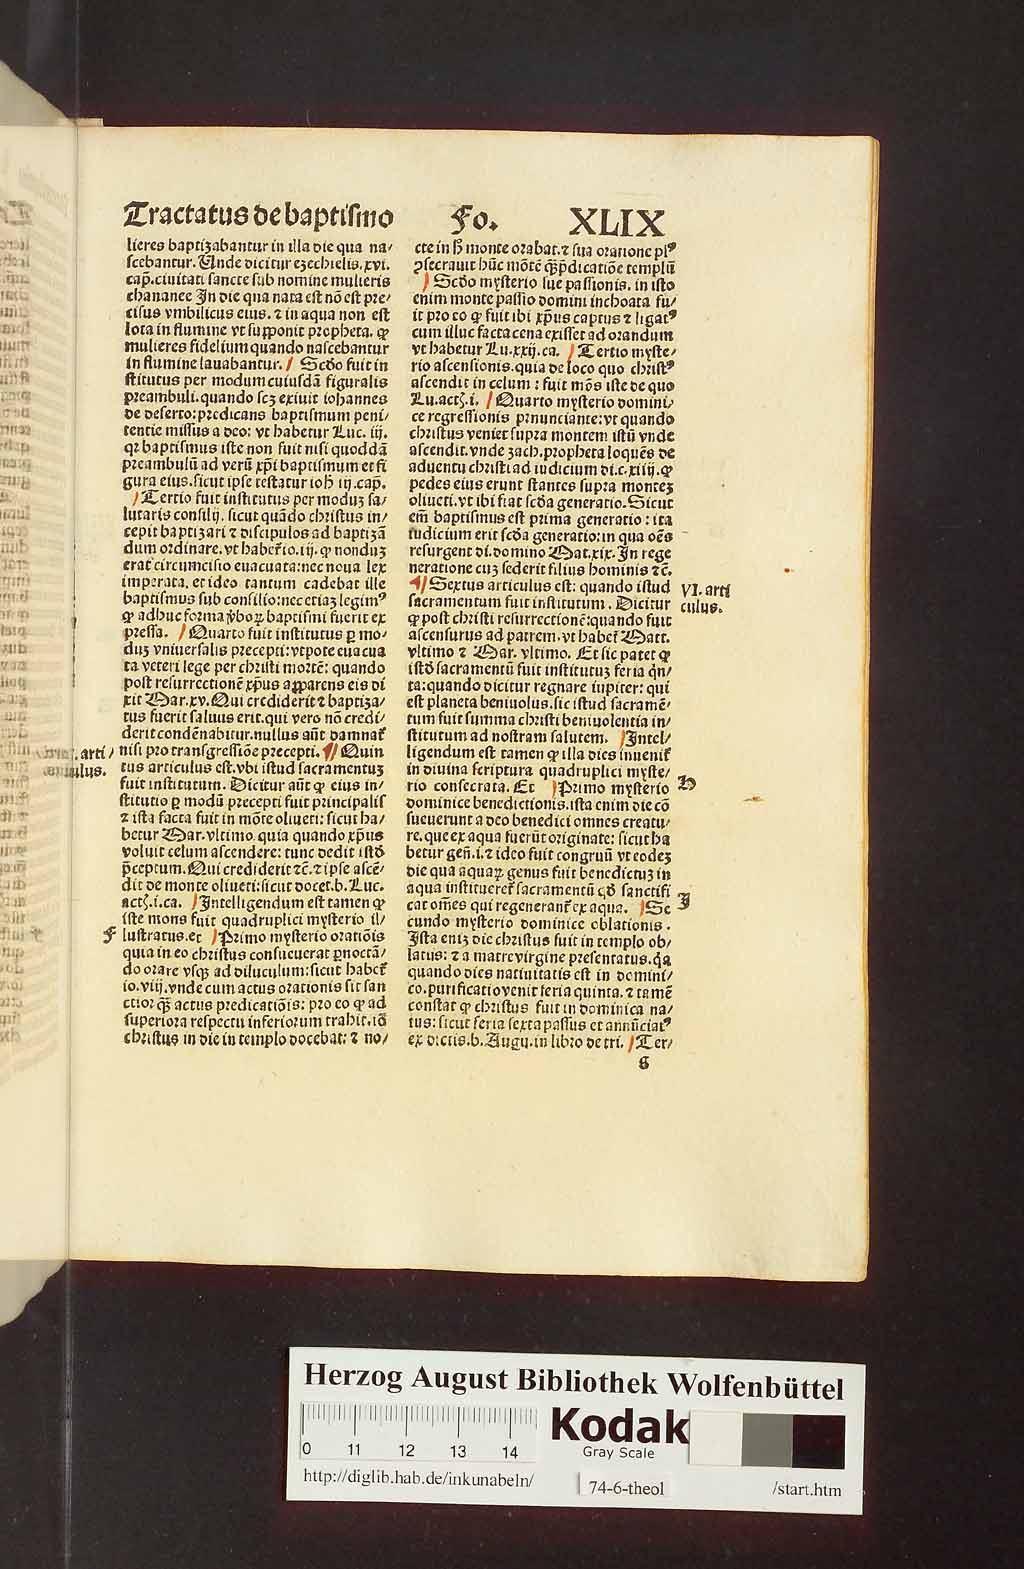 Tractatus de baptismo Fo. XLIX
lieres baptizabantur in illa die qua na/
scebantur. Unde dicitur ezechielis. xvi.
cap̄. civitati sancte sub nomine mulieris
chananee In die qua nata est nō est pre/
cisus vmbilicus eius. ⁊ in aqua non est
lota in flumine vt supponit propheta. ꝙ
mulieres fidelium quando nascebantur
in flumine lavabantur. Scd̄o fuit in
stitutus per modum cuiusdā figuralis
preambuli. quando scꝫ exiuit iohannes
de deserto: predicans baptismum peni/
tentie missus a deo: vt habetur Luc. iij.
qꝛ baptismus iste non fuit nisi quoddā
preambulū ad verū xp̄i baptismum et fi
gura eius. sicut ipse testatur ioh̄ iij cap̄.
Tertio fuit institutus per moduꝫ sa/
lutaris consilij. sicut quādo christus in/
cepit baptizari ⁊ discipulos ad baptizā
dum ordinare. vt haber̄ io. iij. ꝙ nonduꝫ
erat circumcisio euacuata: nec noua lex
imperata. et ideo tantum cadebat ille
baptismus sub consilio: nec etiaꝫ legimꝰ
ꝙ adhuc forma v̓boꝝ baptismi fuerit ex
pressa. Quarto fuit institutus ꝑ mo/
duꝫ vniuersalis precepti: vtpote euacua
ta veteri lege per christi mortē: quando
post resurrectionē xp̄us apparens eis di
xit Mar. xv. Qui crediderit ⁊ baptiza/
tus fuerit saluus erit. qui vero nō credi/
derit condēnabitur. nullus aūt damnat̄
nisi pro transgressiōe precepti. Quin
arti/
culus.
tus articulus est. vbi istud sacramentuꝫ
fuit institutum. Dicitur aūt ꝙ eius in/
stitutio ꝑ modū precepti fuit principalis
⁊ ista facta fuit in mōte oliueti: sicut ha/
betur Mar. vltimo. quia quando xp̄us
voluit celum ascendere: tunc dedit istd̄
p̄ceptum. Qui crediderit ⁊c̄. ⁊ ipse ascē/
dit de monte oliueti: sicut docet. b. Luc.
actꝭ. i. ca. Intelligendum est tamen ꝙ
iste mons fuit quadruplici mysterio il/
F lustratus. et Primo mysterio oratiōis
quia in eo christus consueuerat ꝑnoctā/
do orare vsqꝫ ad diluculum: sicut haber̄
io. viij. vnde cum actus orationis sit san
ctior qꝫ̄ actus predicatiōis: pro eo ꝙ ad
superiora respectu inferiorum trahit. iō
christus in die in templo docebat: ⁊ no/
cte in h̄ monte orabat. ⁊ sua oratione plꝰ
ꝯsecrauit hūc mōtē qꝫ̄ p̄dicatiōe templū
Scd̄o mysterio sue passionis. in isto
enim monte passio domini inchoata fu/
it pro eo ꝙ fuit ibi xp̄us captus ⁊ ligatꝰ
cum illuc facta cena exisset ad orandum
vt habetur Lu. xxij. ca. Tertio myste/
rio ascensionis. quia de loco quo christꝰ
ascendit in celum: fuit mōs iste de quo
Lu. actꝭ. i. Quarto mysterio domini/
ce regressionis prnunciante: vt quando
christus veniet supra montem istū vnde
ascendit. vnde zach. propheta loquēs de
aduentu christi ad iudicium di. c. xiiij. ꝙ
pedes eius erunt stantes supra monteꝫ
oliueti. vt ibi fiat scd̄a generatio. Sicut
em̄ baptismus est prima generatio: ita
iudicium erit scd̄a generatio: in qua oēs
resurgent di. domino Mat. xix. In rege
neratione cuꝫ sederit filius hominis ⁊c̄.
Sextus articulus est: quando istud
VI. arti
culus.
sacramentum fuit institutum. Dicitur
ꝙ post christi resurrectionē: quando fuit
ascensurus ad patrem. vt haber̄ Matt.
vltimo ⁊ Mar. vltimo. Et sic patet ꝙ
istd̄ sacramentū fuit institutuꝫ feria q̄n/
ta: quando dicitur regnare iupiter: qui
est planeta beniuolus. sic istud sacramē/
tum fuit summa christi beniuolentia in/
stitutum ad nostram salutem. Intel/
ligendum est tamen ꝙ illa dies inuenit̄
in diuina scriptura quadruplici myste/
rio consecrata. Et Primo mysterio H
dominice benedictionis. ista enim die cō
sueuerunt a deo benedici omnes creatu/
re. que ex aqua fuerūt originate: sicut ha
betur gen̄. i. ⁊ ideo fuit congruū vt eodeꝫ
die qua aquaꝝ genus fuit benedictuꝫ in
aqua instituerer̄ sacramentū qd̄ sanctifi
cat om̄es qui regenerant̄ ex aqua. Se J
cundo mysterio dominice oblationis.
Ista eniꝫ die christus fuit in templo ob/
latus: ⁊ a matre virgine presentatus. q̄a
quando dies natiuitatis est in domini/
co. purificatio venit feria quinta. ⁊ tamē
constat ꝙ christus fuit in dominica na/
tus: sicut feria sexta passus et annūciatꝰ
ex dictis. b. Augu. in libro de tri. Ter/
G
Herzog August Bibliothek Wolfenbüttel
0 11 12 13 14
Kodak
Gray Scale
http://diglib.hab.de/inkunabeln/ 74-6-theol /start.htm